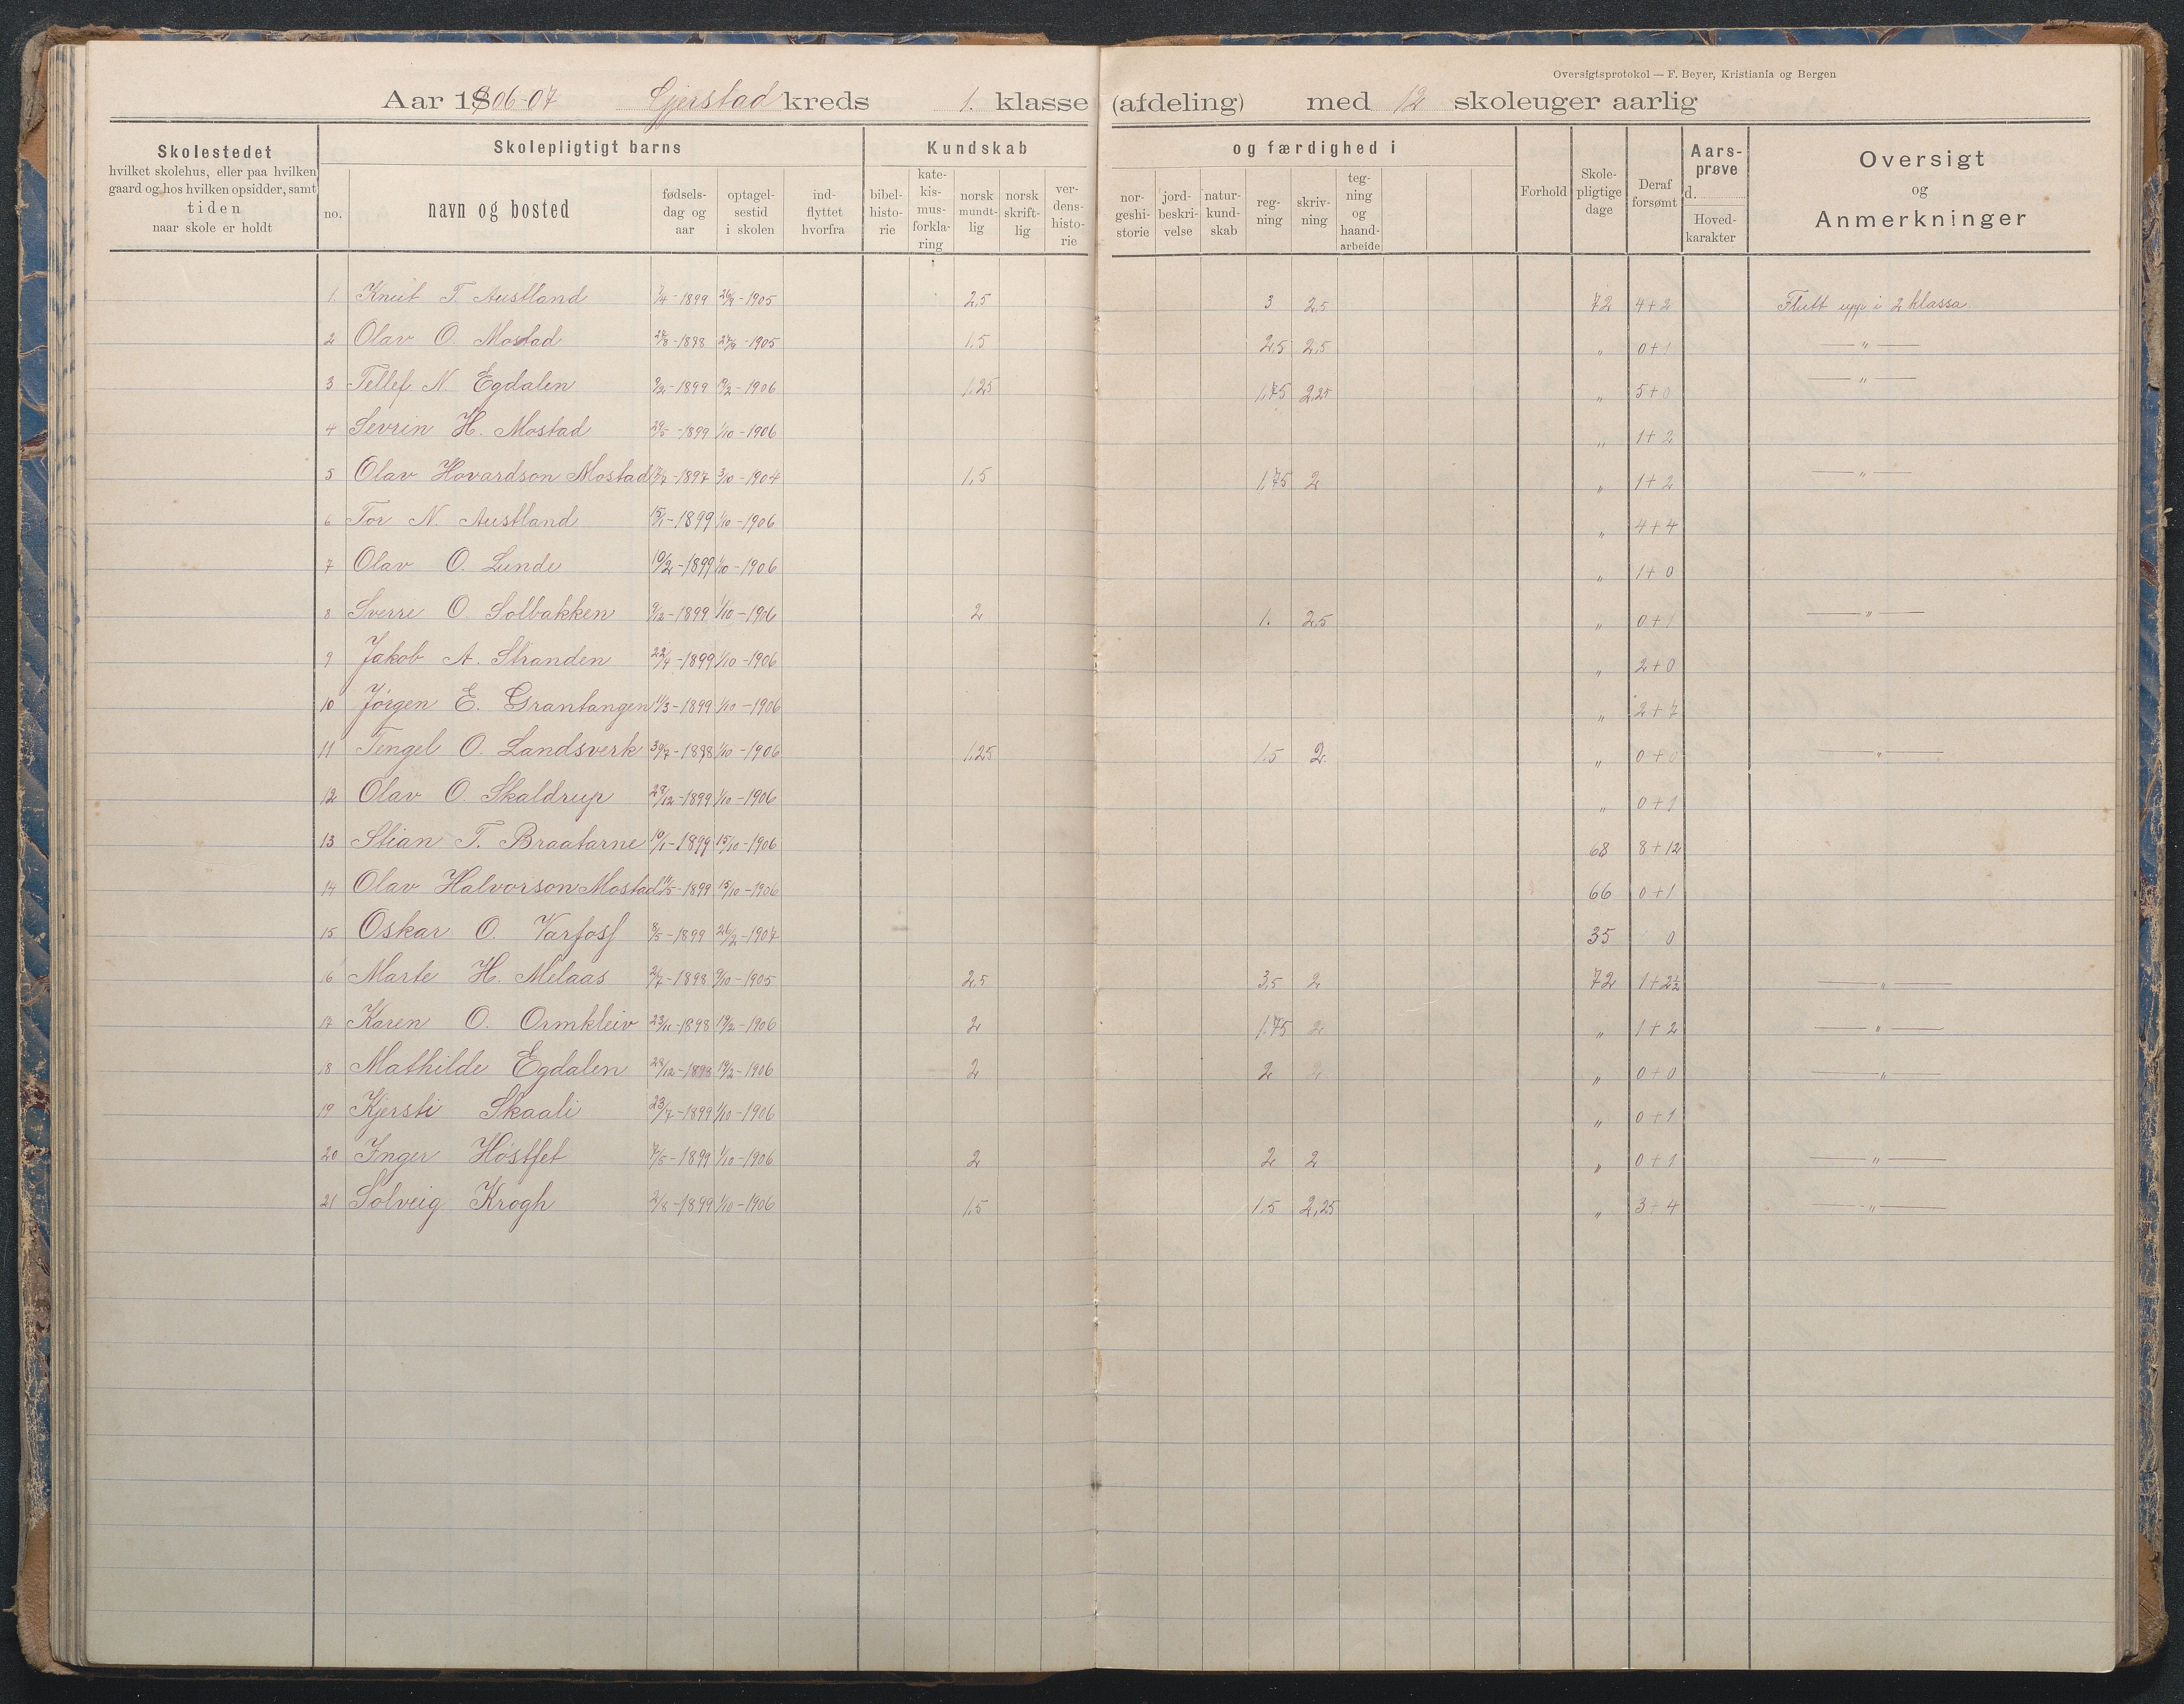 Oversigtsprotokol — F. Beyer, Kristiania og Bergen
Aar 1906-07 Gjerstad kreds 1. klasse (afdeling) med 12 skoleuger aarlig
Skolestedet hvilket skolehus, eller paa hvilken gaard og hos hvilken opsidder, samt tiden naar skole er holdt
Skolepligtigt barns
no. navn og bosted fødsels-dag og aar optagel-sestid i skolen ind-flyttet hvorfra
Kundskab og færdighed i
bibel-histo-rie kate-kis-mus-forkla-ring norsk mundt-lig norsk skrift-lig ver-dens-histo-rie nor-geshi-storie jord-beskri-velse natur-kund-skab reg-ning skriv-ning teg-ning og haand-arbeide
Forhold Skole-pligtige dage Deraf forsømt Aars-prøve d. Hoved-karakter
Oversigt og Anmerkninger
1. Knut T. Austland 7/4-1899 26/9-1905 2,5 3 2,5 72 4+2 Flutt upp i 2 klassa.
2 Olav O. Mostad 24/8-1898 27/9-1905 1,5 2,5 2,5 " 0+1 — " —
3 Tellef N. Egdalen 9/2-1899 19/2-1906 1,25 1,75 2,25 " 5+0 — " —
4 Sevrin H. Mostad 29/5-1899 1/10-1906 " 1+2
5 Olav Hovardson Mostad 17/7-1897 3/10-1904 1,5 1,75 2 " 1+2 — " —
6 Tor N. Austland 15/1-1899 1/10-1906 " 4+4
7 Olav O. Lunde 10/2-1899 1/10-1906 " 1+0
8 Sverre O. Solbakken 9/12-1899 1/10-1906 2 1. 2,5 " 0+1 — " —
9 Jakob A. Stranden 22/4-1899 1/10-1906 " 2+0
10 Jørgen E. Grantangen 11/3-1899 1/10-1906 " 2+7
11 Tengel O. Landsverk 30/7-1898 1/10-1906 1,25 1,5 2. " 0+0 — " —
12 Olav O. Skaldrup 29/12-1899 1/10-1906 " 0+1
13 Stian T. Braatarne 10/1-1899 15/10-1906 68 8+12
14 Olav Halvorson Mostad 11/5-1899 15/10-1906 66 0+1
15 Oskar O. Varfoss 8/5-1899 26/2-1907 35 0
16 Marte H. Melaas 2/7-1898 9/10-1905 2,5 3,5 2 72 1+2½ — " —
17 Karen O. Ormkleiv 23/11-1898 19/2-1906 2 1,75 2 " 1+2 — " —
18 Mathilde Egdalen 29/12-1898 19/2-1906 2 2 2 " 0+0 — " —
19 Kjersti Skaali 23/7-1899 1/10-1906 " 0+1
20 Inger Høstfet 7/5-1899 1/10-1906 2 2 2 " 0+1 — " —
21 Solveig Krogh 2/8-1899 1/10-1906 1,5 1,5 2,25 " 3+4 — " —